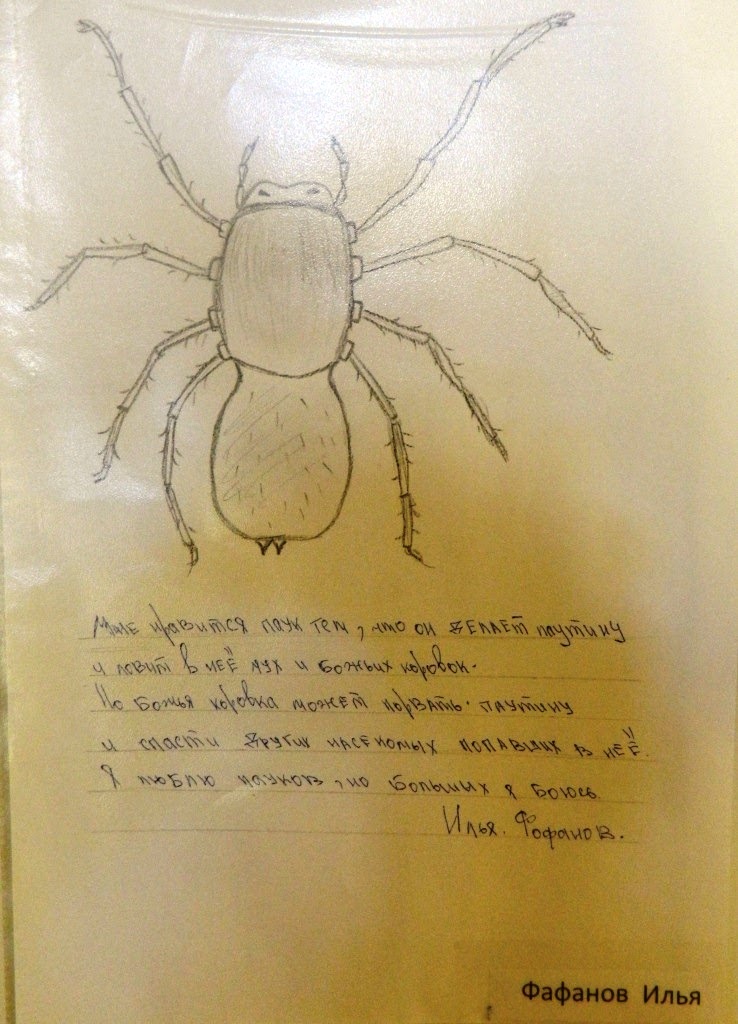 Мне нравится паук тем, что он делает паутину
и ловит в неё мух и божьих коровок.
Но божья коровка может порвать паутину
и спасти других насекомых попавших в неё.
Я люблю пауков, но больших я боюсь.
Илья. Фофанов.
Фафанов Илья